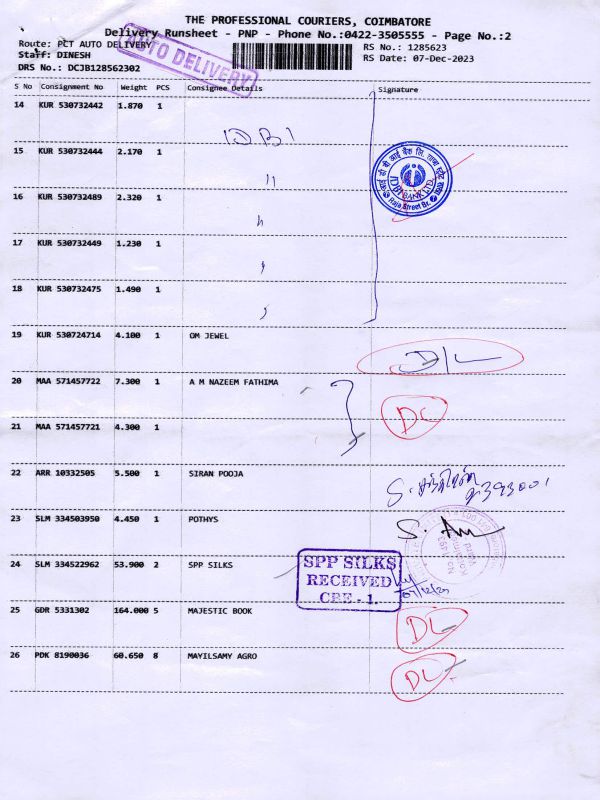 THE PROFESSIONAL COURIERS, COIMBATORE
Delivery Runsheet - PNP - Phone No.:0422-3505555 - Page No.:2
Route: PCT AUTO DELIVERY
RS No.: 1285623
Staff: DINESH
RS Date: 07-Dec-2023
DRS No.: DCJB128562302
AUTO DELIVERY
S No Consignment No Weight PCS Consignee Details Signature
14 KUR 530732442 1.870 1 IDBI
15 KUR 530732444 2.170 1 "
IDBI BANK LTD.
Raja Street Br.
16 KUR 530732489 2.320 1 "
17 KUR 530732449 1.230 1
18 KUR 530732475 1.490 1
19 KUR 530724714 4.100 1 OM JEWEL D/L
20 MAA 571457722 7.300 1 A M NAZEEM FATHIMA
DL
21 MAA 571457721 4.300 1
22 ARR 10332505 5.500 1 SIRAN POOJA
23 SLM 334503950 4.450 1 POTHYS
24 SLM 334522962 53.900 2 SPP SILKS
SPP SILKS
RECEIVED
CBE - 1.
07/12/23
25 GDR 5331302 164.000 5 MAJESTIC BOOK DL
26 PDK 8190036 60.650 8 MAYILSAMY AGRO DL